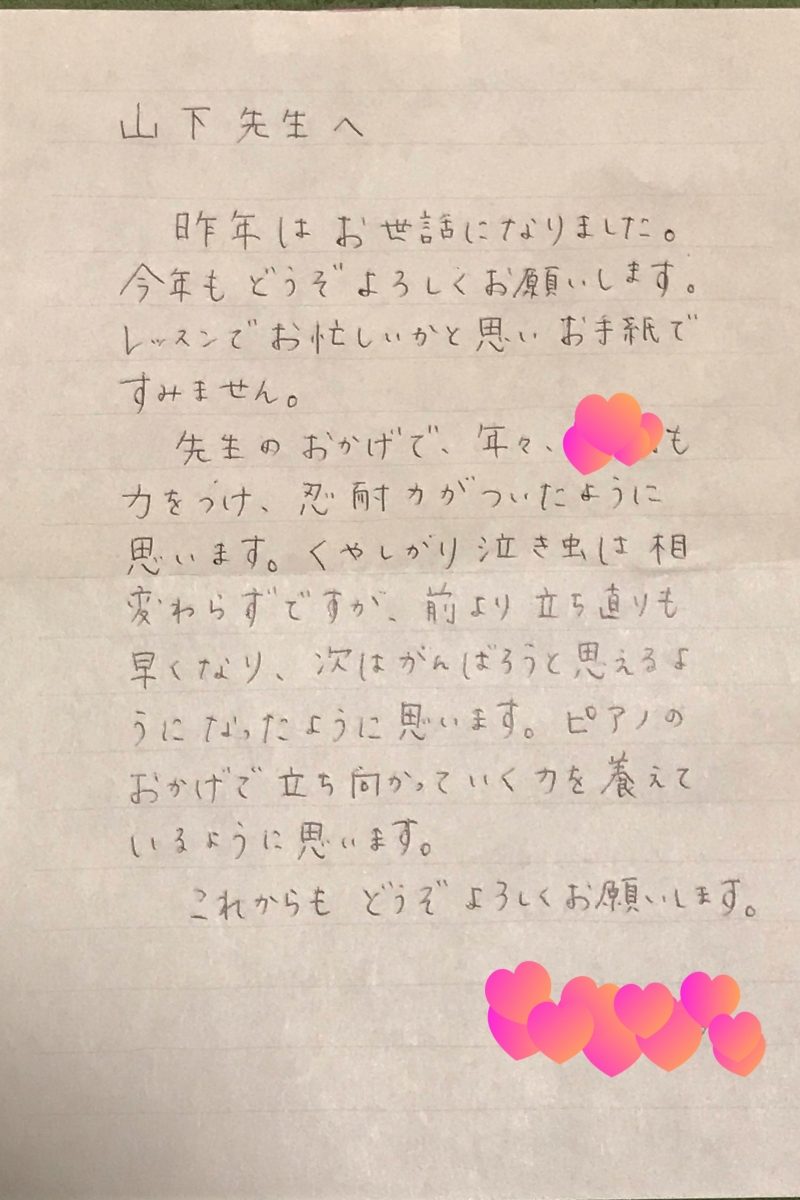 山下先生へ
昨年はお世話になりました。
今年もどうぞよろしくお願いします。
レッスンでお忙しいかと思いお手紙で
すみません。
先生のおかげで、年々、も
力をつけ、忍耐力がついたように
思います。くやしがり泣き虫は相
変わらずですが、前より立ち直りも
早くなり、次はがんばろうと思えるよ
うになったように思います。ピアノの
おかげで立ち向かっていく力を養えて
いるように思います。
これからもどうぞよろしくお願いします。